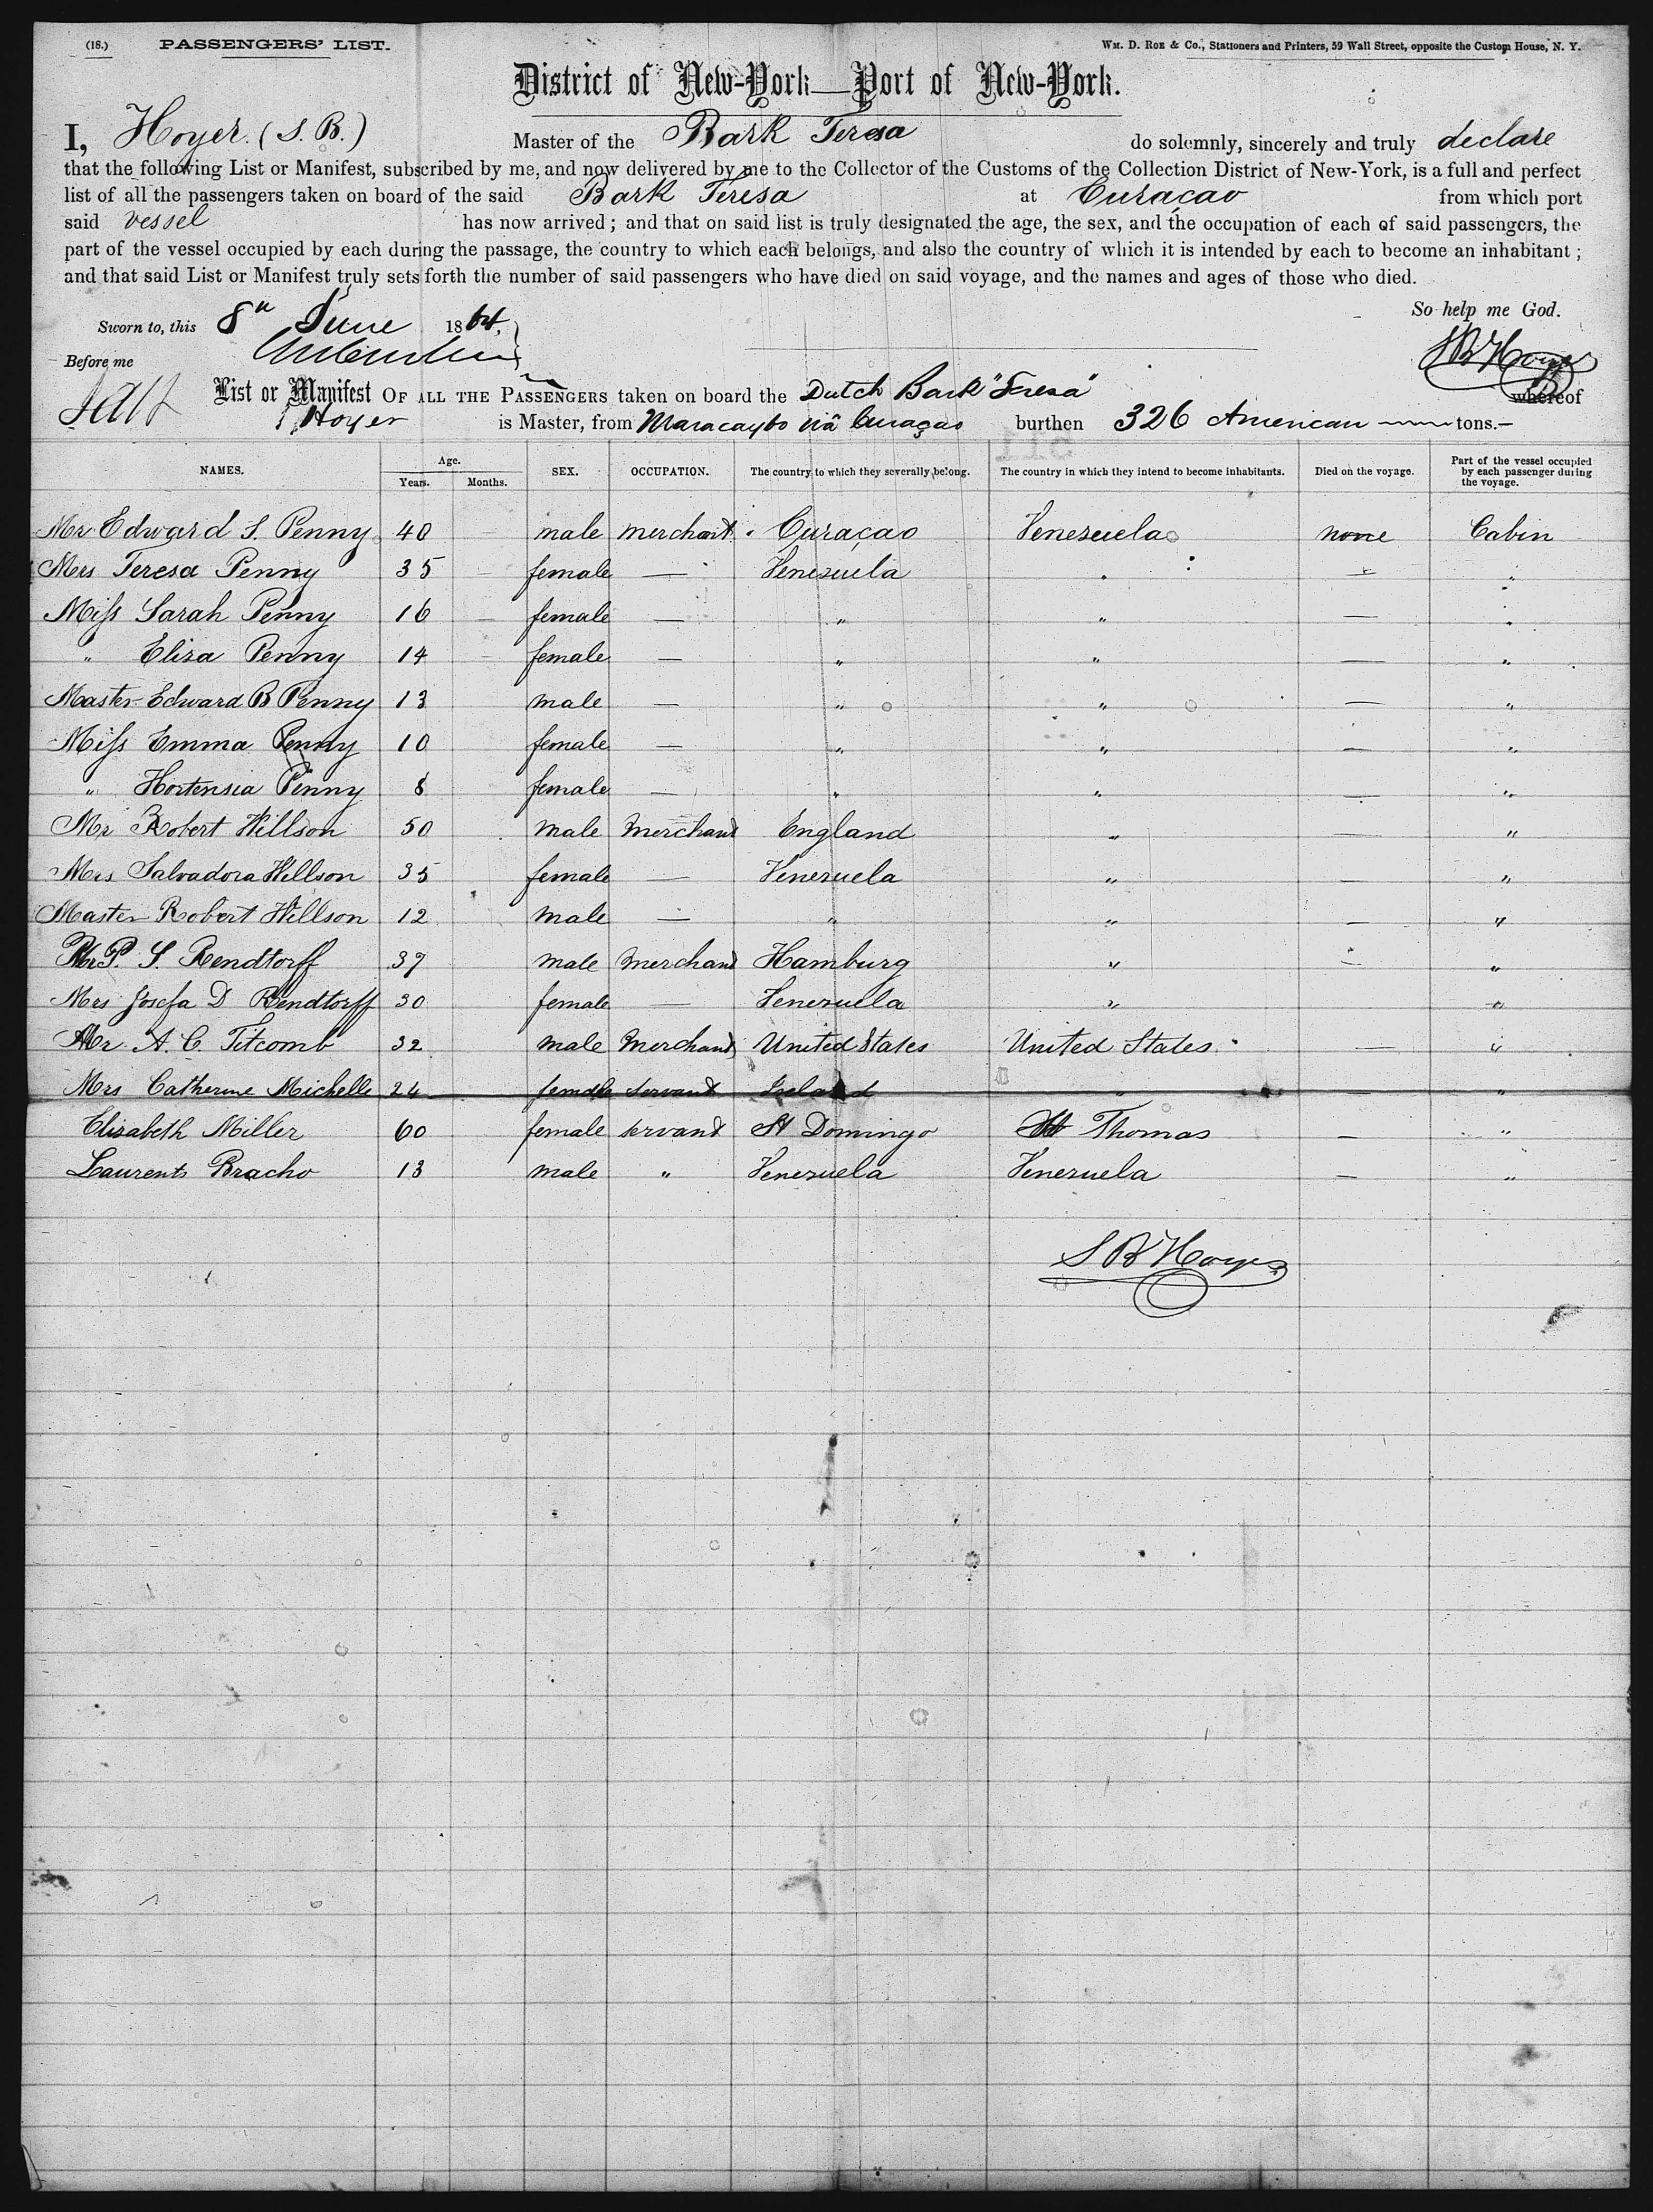 (18.) PASSENGERS' LIST. Wm. D. Roe & Co., Stationers and Printers, 59 Wall Street, opposite the Custom House, N. Y.
District of New-York—Port of New-York.
I, Hoyer. (S. B.) Master of the Bark Teresa do solemnly, sincerely and truly declare
that the following List or Manifest, subscribed by me, and now delivered by me to the Collector of the Customs of the Collection District of New-York, is a full and perfect
list of all the passengers taken on board of the said Bark Teresa at Curaçao from which port
said vessel has now arrived; and that on said list is truly designated the age, the sex, and the occupation of each of said passengers, the
part of the vessel occupied by each during the passage, the country to which each belongs, and also the country of which it is intended by each to become an inhabitant;
and that said List or Manifest truly sets forth the number of said passengers who have died on said voyage, and the names and ages of those who died.
So help me God.
Sworn to, this 8th June 1864,
Before me
S B Hoyer
List or Manifest OF ALL THE PASSENGERS taken on board the Dutch Bark "Teresa" whereof
Hoyer is Master, from Maracaybo viâ Curaçao burthen 326 American tons.—
NAMES. Age. Years. Months. SEX. OCCUPATION. The country to which they severally belong. The country in which they intend to become inhabitants. Died on the voyage. Part of the vessel occupied by each passenger during the voyage.
Mr Edward S. Penny 40 male merchant Curaçao Venezuela none Cabin
Mrs Teresa Penny 35 female — Venezuela " — "
Miss Sarah Penny 16 female — " " — "
" Elisa Penny 14 female — " " — "
Master Edward B Penny 13 male — " " — "
Miss Emma Penny 10 female — " " — "
" Hortensia Penny 8 female — " " — "
Mr Robert Willson 50 male Merchand England " — "
Mrs Salvadora Willson 35 female — Venezuela " — "
Master Robert Willson 12 male — " " — "
Mr P. S. Rendtorff 39 male Merchand Hamburg " — "
Mrs Josefa D Rendtorff 30 female — Venezuela " — "
Mr A. C. Titcomb 32 male Merchand United States United States — "
Mrs Catherine Michelle 24 female servant " "
Elisabeth Miller 60 female servand St Domingo St Thomas — "
Laurents Bracho 13 male " Venezuela Venezuela — "
S B Hoyer